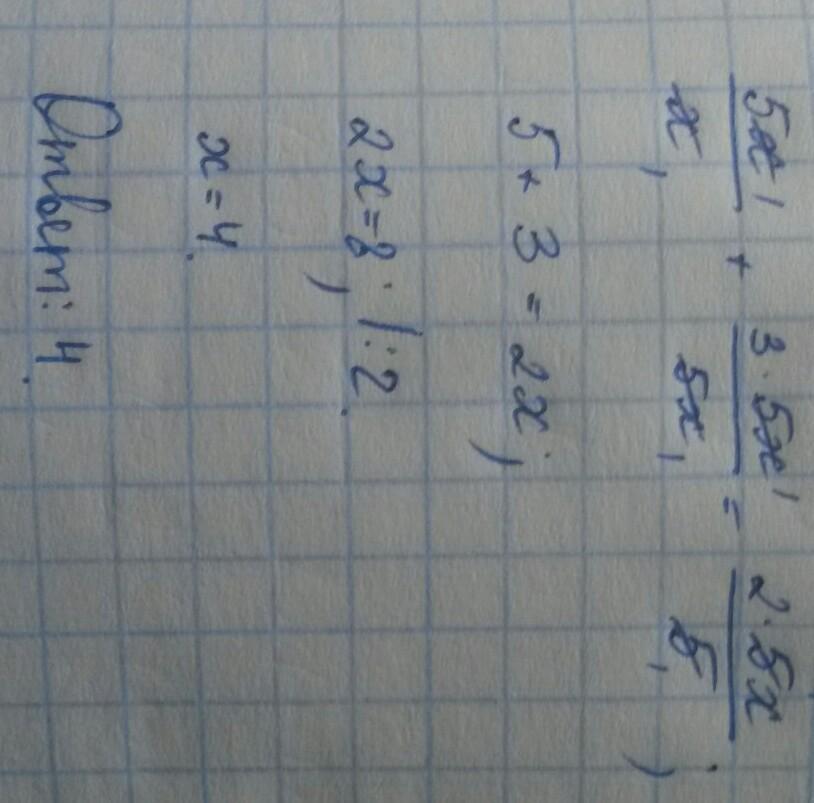 5x/x + 3·5x/5x = 2·5x/5;
5 + 3 = 2x;
2x = 8; |:2.
x = 4.
Ответ: 4.